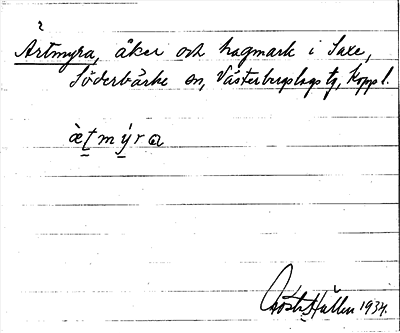 ?
Artmyra, åker och hagmark i Saxe,
Söderbärke sn, Västerbergslags tg, Kopp l.
ӕ̀tmýra
Gösta Hallén 1934.